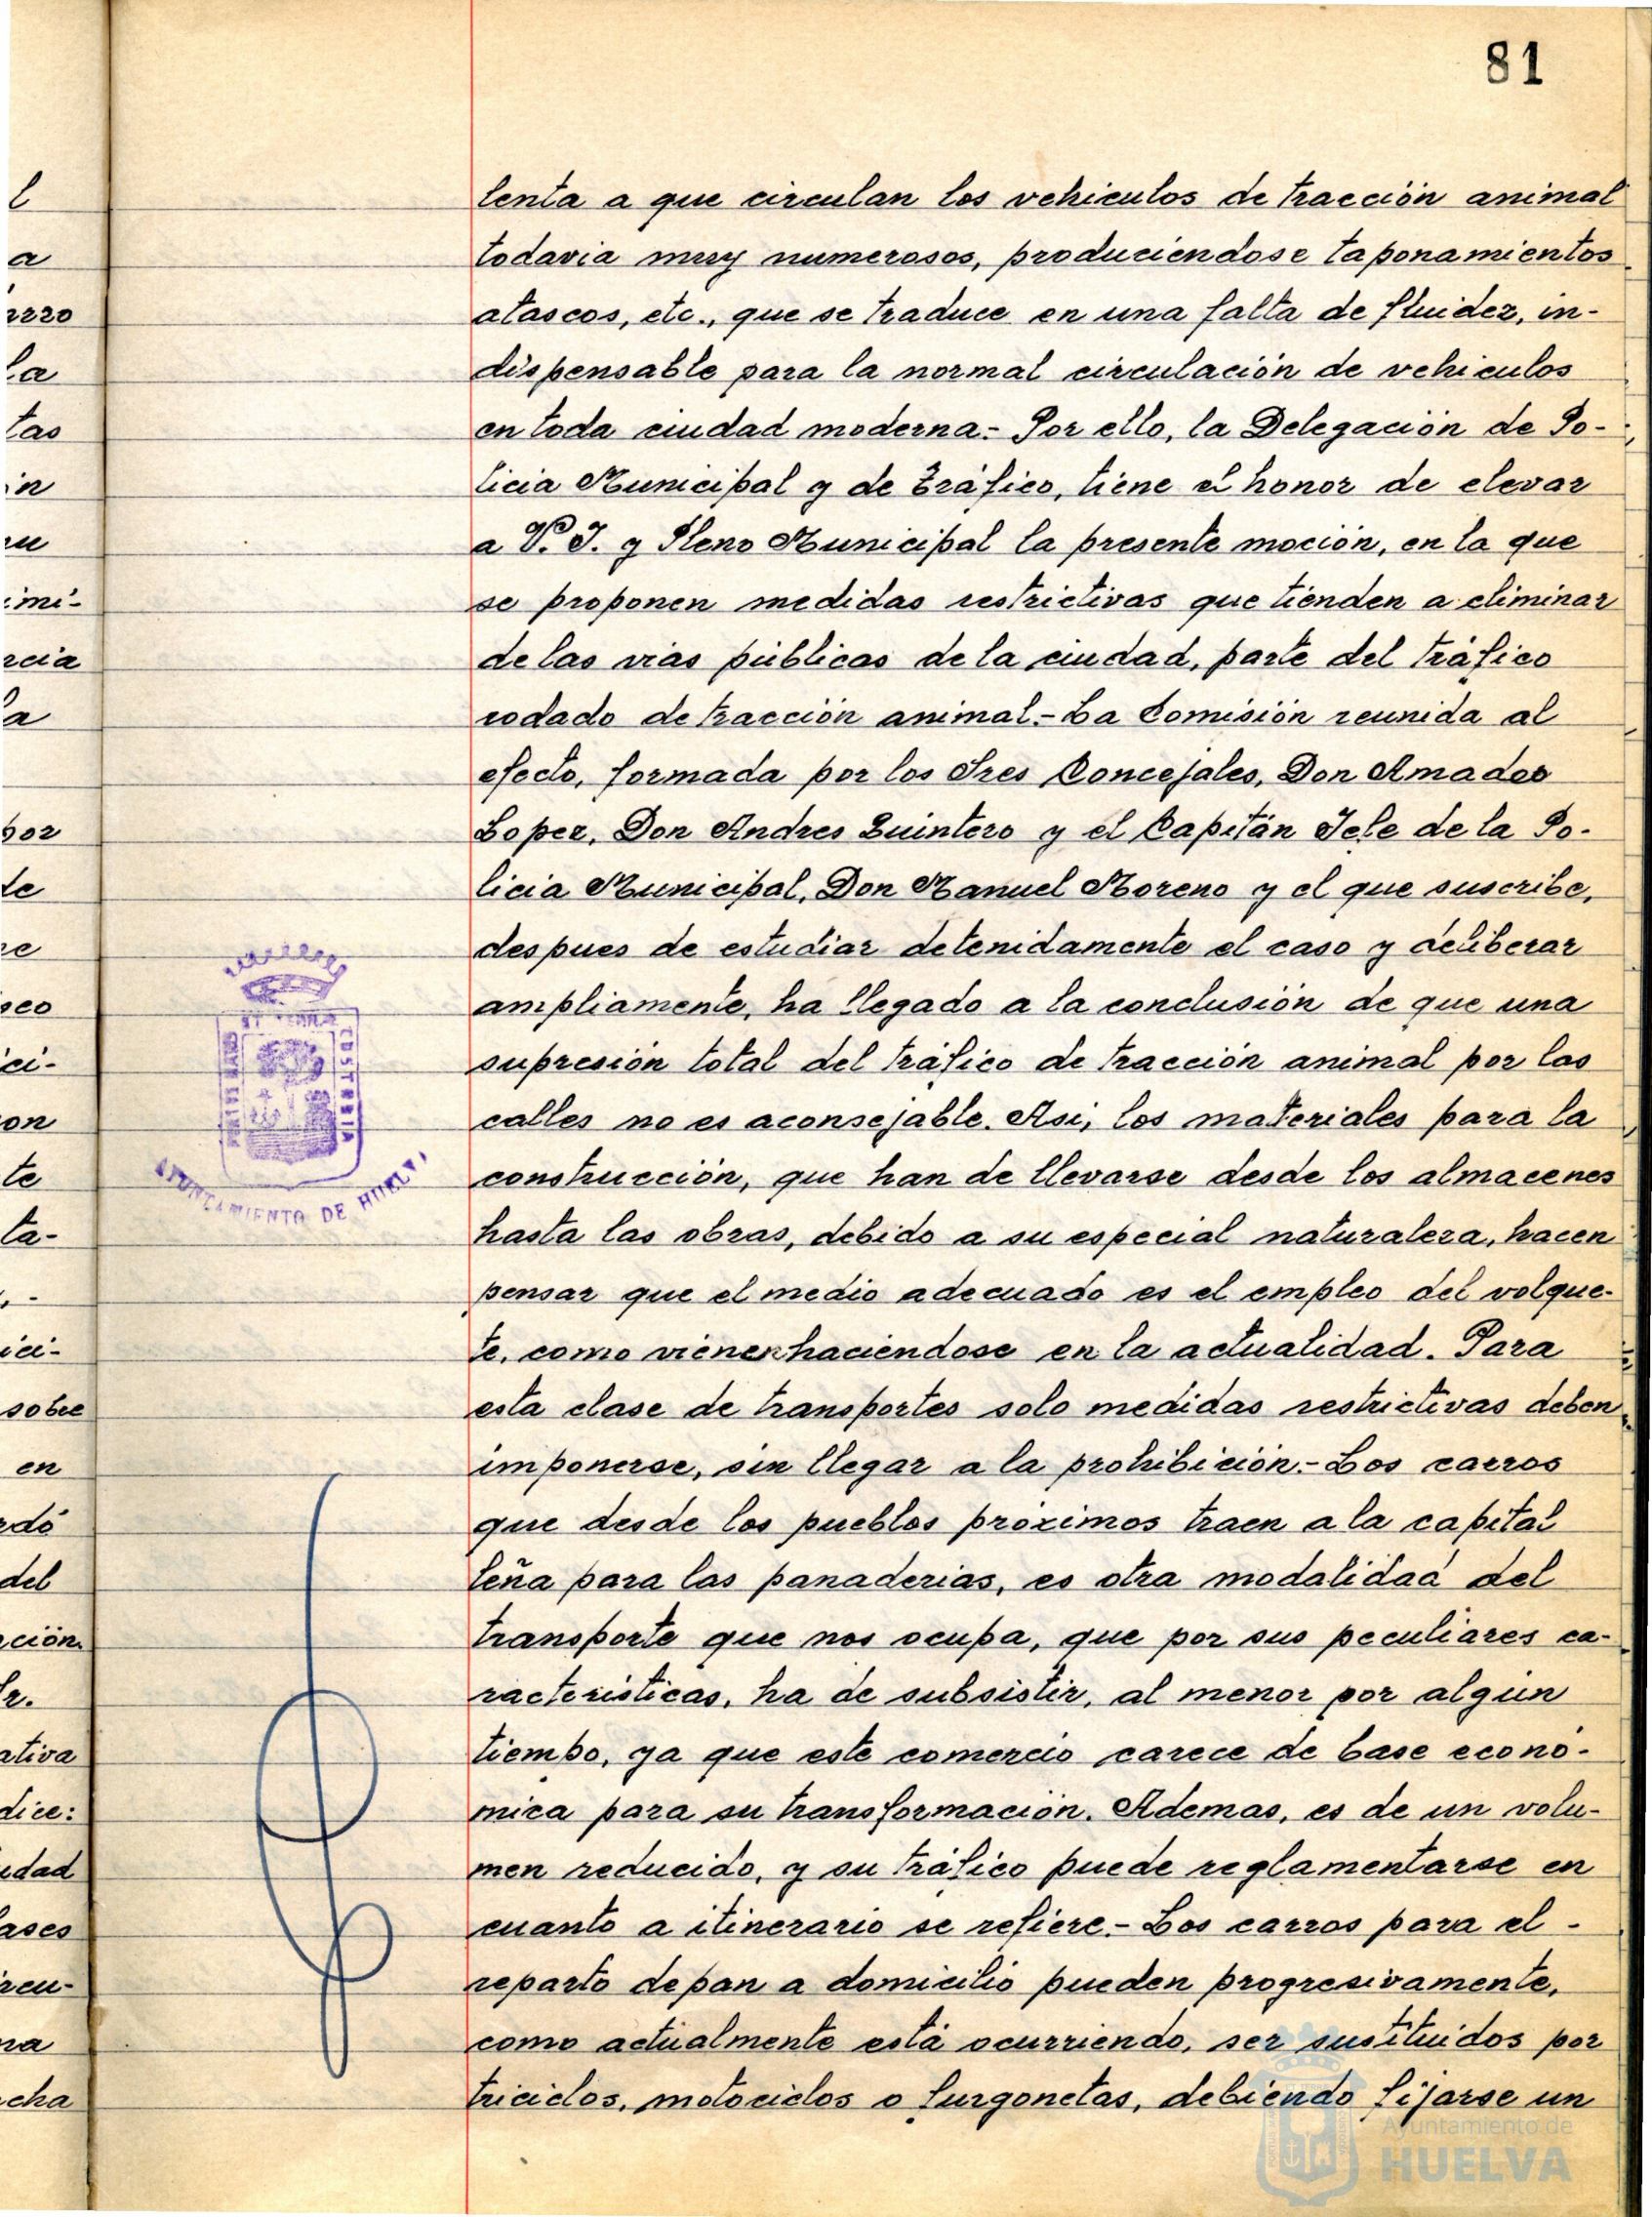 81
lenta a que circulan los vehiculos de tracción animal
todavia muy numerosos, produciendose taponamientos
atascos, etc., que se traduce en una falta de fluidez, in-
dispensable para la normal circulación de vehiculos
en toda ciudad moderna.- Por ello, la Delegación de Po-
licia Municipal y de Tráfico, tiene el honor de elevar
a V. I. y Pleno Municipal la presente moción, en la que
se proponen medidas restrictivas que tienden a eliminar
de las vias públicas de la ciudad, parte del tráfico
rodado de tracción animal.- La Comisión reunida al
efecto, formada por los Sres Concejales, Don Amador
Lopez, Don Andres Quintero y el Capitán Jefe de la Po-
licia Municipal, Don Manuel Moreno y el que suscribe,
despues de estudiar detenidamente el caso y deliberar
ampliamente, ha llegado a la conclusión de que una
supresión total del tráfico de tracción animal por las
calles no es aconsejable. Asi, los materiales para la
construcción, que han de llevarse desde los almacenes
hasta las obras, debido a su especial naturaleza, hacen
pensar que el medio adecuado es el empleo del volque-
te, como vienen haciendose en la actualidad. Para
esta clase de transportes solo medidas restrictivas deben
imponerse, sin llegar a la prohibición.- Los carros
que desde los pueblos próximos traen a la capital
leña para las panaderias, es otra modalidad del
transporte que nos ocupa, que por sus peculiares ca-
racteristicas, ha de subsistir, al menor por algún
tiempo, ya que este comercio carece de base econó-
mica para su transformación. Ademas, es de un volu-
men reducido, y su tráfico puede reglamentarse en
cuanto a itinerario se refiere.- Los carros para el -
reparto de pan a domicilio pueden progresivamente,
como actualmente está ocurriendo, ser sustituidos por
triciclos, motociclos o furgonetas, debiendo fijarse un
l
a
la
tas
in
imi-
rcia
a
por
de
ci-
on
te
ta-
ici-
sobre
en
rdó
del
ción
ativa
dice:
udad
ases
rcu-
na
cha
AYUNTAMIENTO DE HUELVA
PORTUS MARIS
ET TERRAE
CUSTODIA
Ayuntamiento de
HUELVA